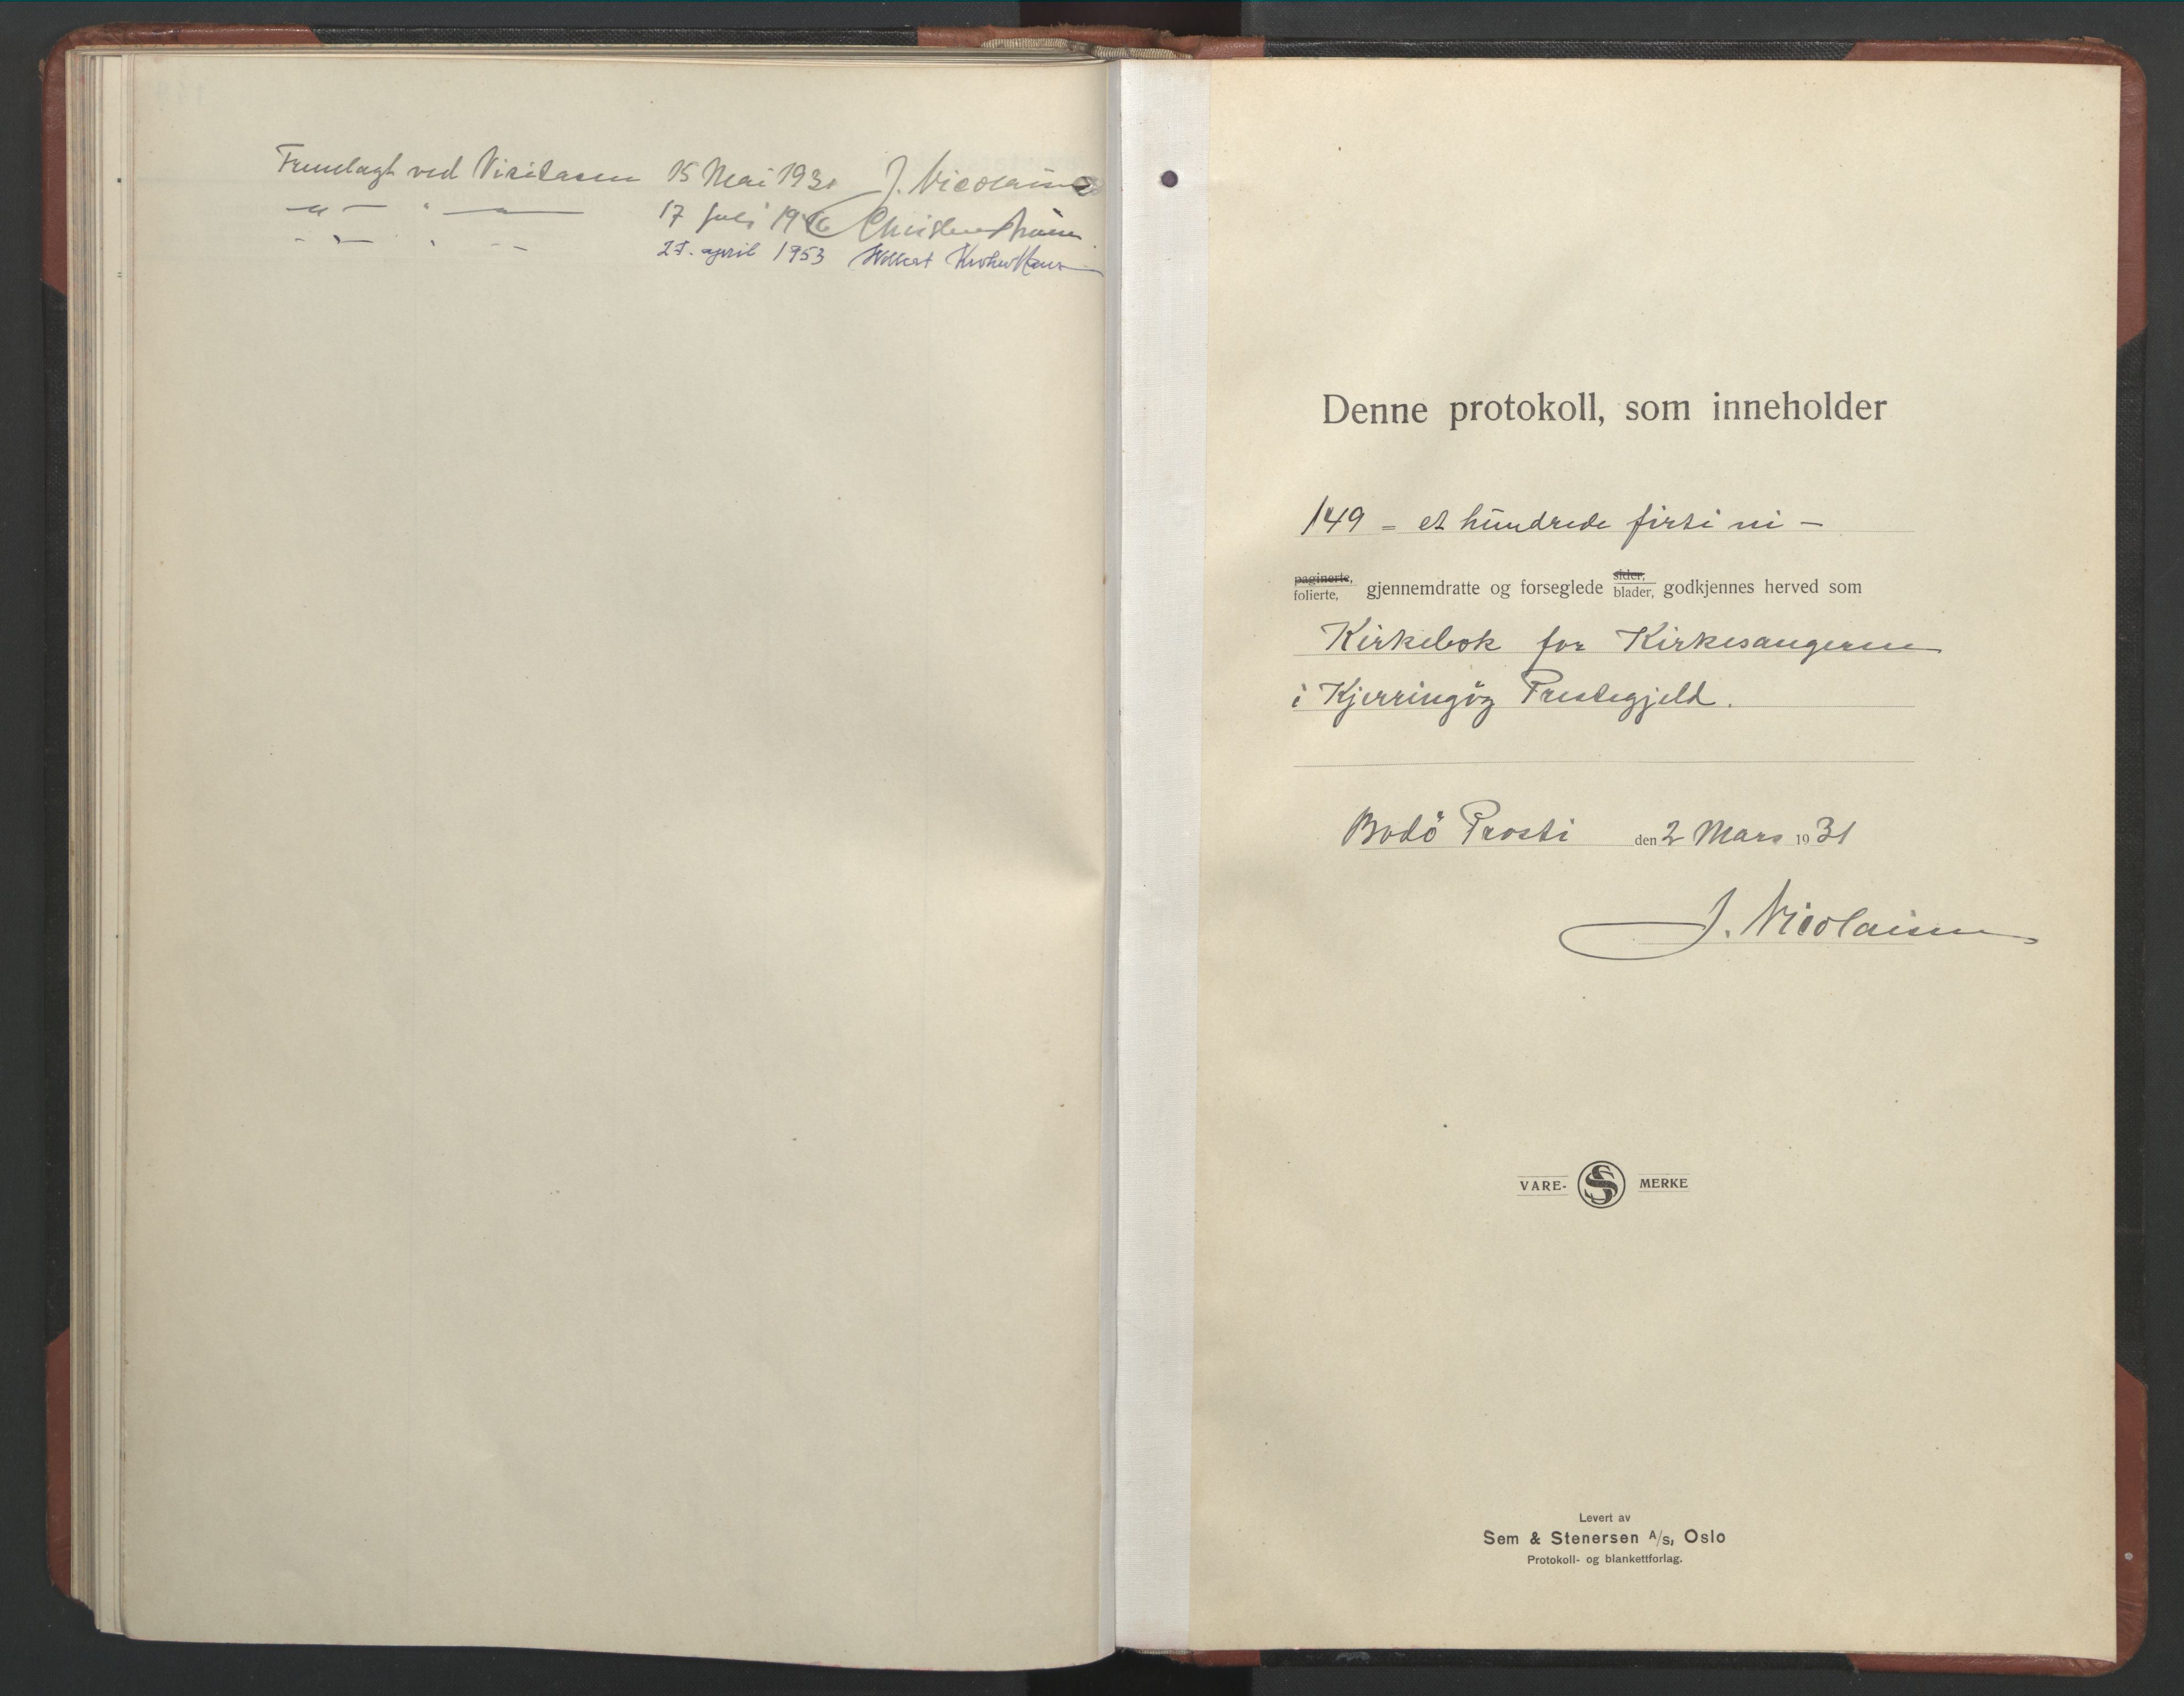 Fremlagt ved Visitasen 15 Mai 193 J. Nicolaisen
— " — " — " — 17 juli 19
27. april 1953 Wollert Krohn Hansen
Denne protokoll, som inneholder
149 = et hundrede firti ni –
paginerte, folierte, gjennemdratte og forseglede sider, blader, godkjennes herved som
Kirkebok for Kirkesangeren
i Kjerringøy Prestegjeld.
Bodö Prosti den 2 Mars 1931
J. Nicolaisen
VARE- S MERKE
Levert av
Sem & Stenersen A/s, Oslo
Protokoll- og blankettforlag.